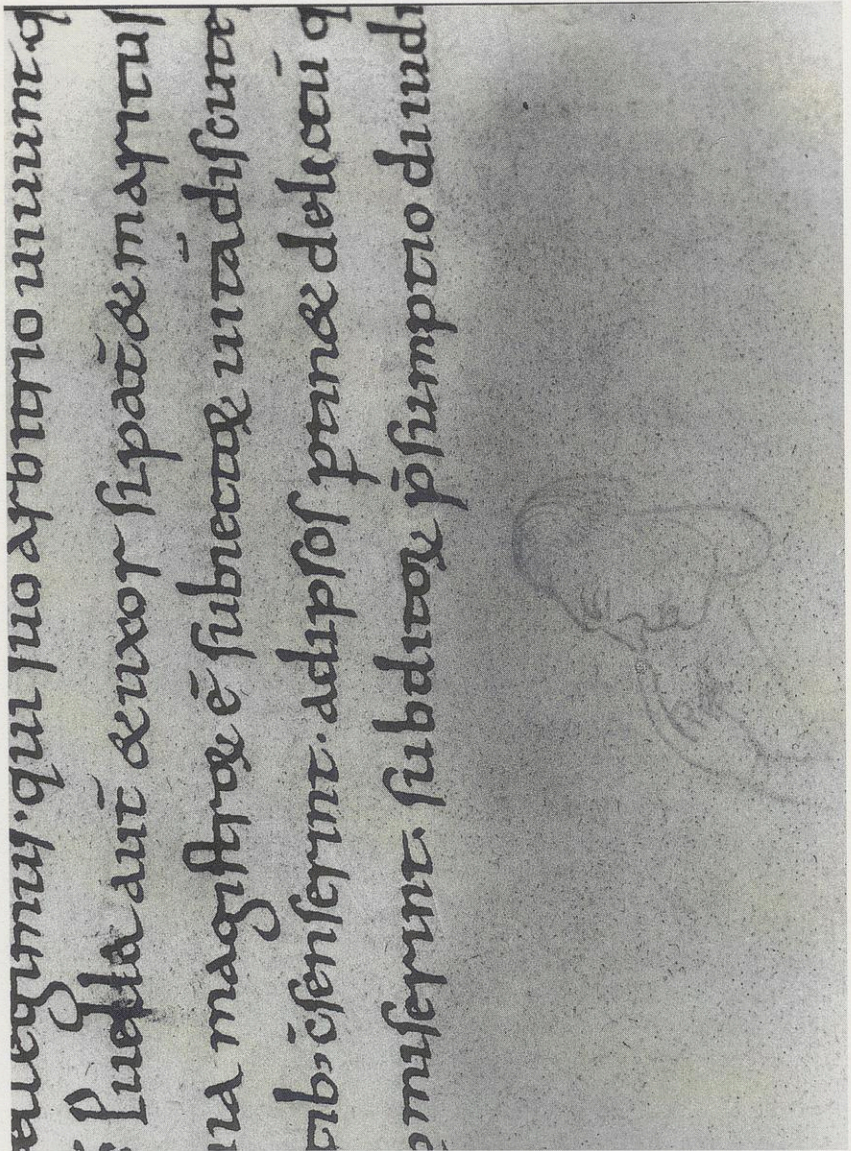 legimus · qui suo arbitrio uiuunt · q
Puella aut̄ & uxor si pat̄ & maritus
na magistræ ē subiectæ uitā discunt
tib; c̄senserint · ad ipsos ꝑtin& delictū q
miserint · subditæ p̄sumptio diiudi